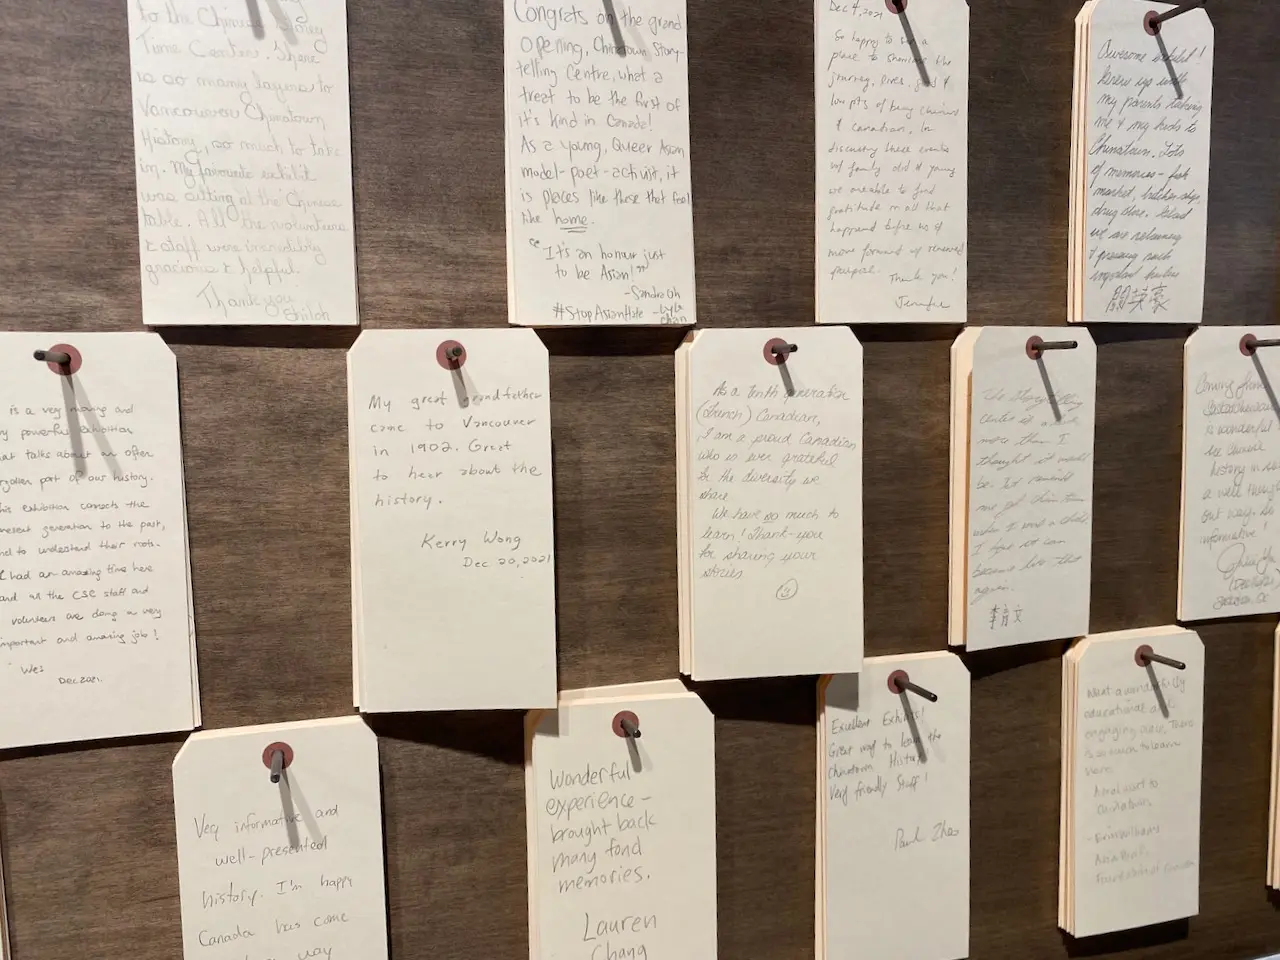 to the Chinese Story
Time Centre. There
is so many layers to
Vancouver Chinatown
History, so much to take
in. My favourite exhibit
was sitting at the Chinese
table. All the volunteers
& staff were incredibly
gracious & helpful.
Thank you
Shiloh
Congrats on the grand
opening, Chinatown Story-
telling Centre, what a
treat to be the first of
it's kind in Canada!
As a young, Queer Asian
model-poet-activist, it
is places like these that feel
like home.
"It's an honour just
to be Asian!"
-Sandra Oh
#StopAsianHate -Lyla
Chan
Dec 4, 2021
So happy to see a
place to showcase the
journey, lives, good &
low pts of being Chinese
& Canadian. In
discussing these events
w/ family old & young
we are able to find
gratitude in all that
happened before us &
move forward w/ renewed
purpose.
Thank you!
Jennifer
Awesome exhibit!
Grew up with
my parents taking
me & my kids to
Chinatown. Lots
of memories - fish
market, butcher shops,
drug store. Glad
we are retaining
& passing such
important
關英豪
is a very moving and
powerful exhibition
that talks about an often
forgotten part of our history.
This exhibition connects the
present generation to the past,
and to understand their roots.
I had an amazing time here
and all the CSC staff and
volunteers are doing a very
important and amazing job!
Wes
Dec 2021.
My great grandfather
came to Vancouver
in 1902. Great
to hear about the
history.
Kerry Wong
Dec 20, 2021
As a tenth generation
(French) Canadian,
I am a proud Canadian
who is ever grateful
for the diversity we
share
We have so much to
learn! Thank-you
for sharing your
stories
The Storytelling
Centre is a lot
more than I
thought it would
be. It reminds
me of Chinatown
when I was a child.
I hope it can
become like that
again.
Coming from
Saskatchewan
is wonderful
to see Chinese
history in such
a well thought
out way. So
informative
Saskatoon, SK
Very informative and
well-presented
history. I'm happy
Canada has come
way
Wonderful
experience-
brought back
many fond
memories.
Lauren
Chang
Excellent Exhibits!
Great way to learn the
Chinatown History
Very friendly Staff!
Paul Zhao
What a wonderfully
educational and
engaging space. There
is so much to learn
here.
A real asset to
- Erin Williams
Asia Pacific
Foundation of Canada